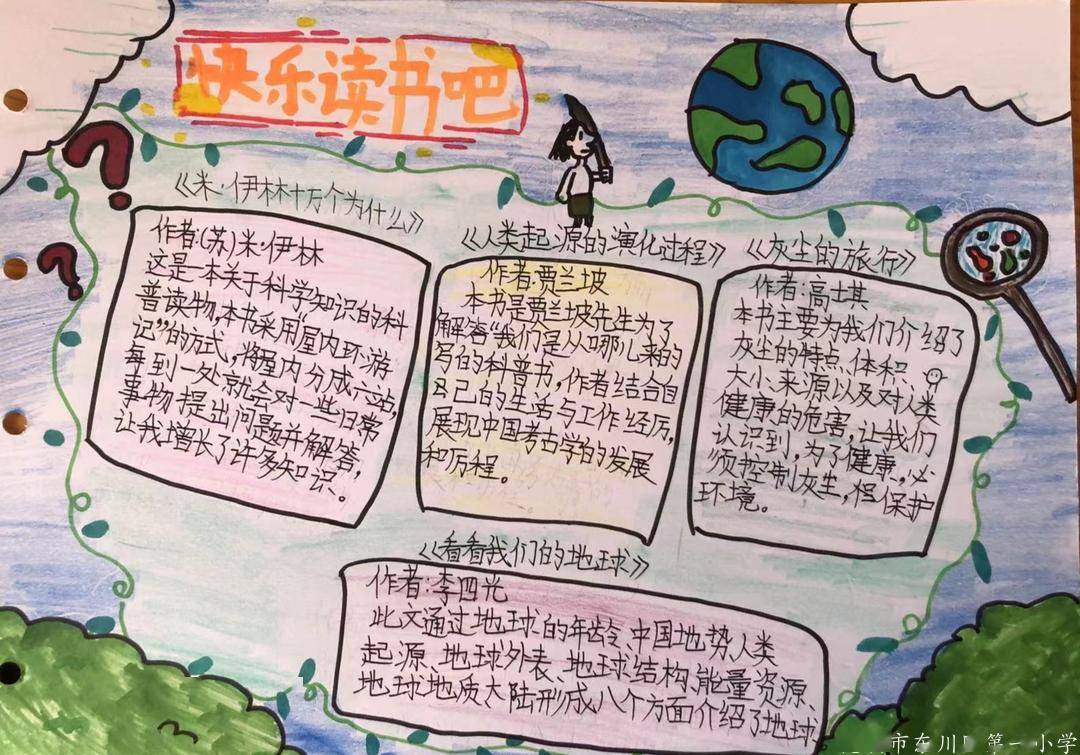 快乐读书吧
《米·伊林十万个为什么》
作者:(苏)米·伊林
这是一本关于科学知识的科
普读物,本书采用屋内环游
记”的方式,将屋内分成六站,
每到一处就会对一些日常
事物提出问题并解答,
让我增长了许多知识。
《人类起源的演化过程》
作者:贾兰坡
本书是贾兰坡先生为了
解答“我们是从哪儿来的
写的科普书,作者结合自
己的生活与工作经历,
展现中国考古学的发展
和历程。
《灰尘的旅行》
作者:高士其
本书主要为我们介绍了
灰尘的特点、体积、
大小、来源以及对人类
健康的危害,让我们
认识到,为了健康,必
须控制灰尘,保护
环境。
《看看我们的地球》
作者:李四光
此文通过地球的年龄、中国地势、人类
起源、地球外表、地球结构、能量资源、
地球地质大陆形成,八个方面介绍了地球
市东川 第一小学